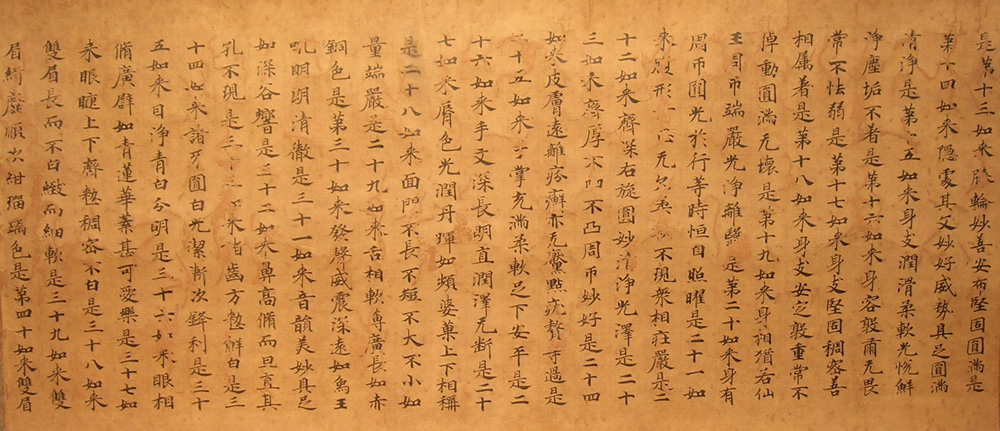 是第十三如來膝輪妙善安布堅固圓滿是
第十四如來隱處其文妙好威勢具足圓滿
清淨是第十五如來身支潤滑柔軟光悅鮮
淨塵垢不著是第十六如來身容敦肅无畏
常不怯弱是第十七如來身支堅固稠密善
相属著是第十八如來身支安定敦重常不
掉動圓滿无壞是第十九如來身相猶若仙
王周帀端嚴光淨離翳是第二十如來身有
周帀圓光於行等時恒自照曜是二十一如
來腹形无欠柔不現衆相莊嚴是二
十二如來臍深右旋圓妙清淨光澤是二十
三如來臍厚不凹不凸周帀妙好是二十四
如來皮膚遠離疥癬亦无黶點疣贅等過是
二十五如來手掌充滿柔軟足下安平是二
十六如來手文深長明直潤澤无斷是二十
七如來脣色光潤丹暉如頻婆菓上下相稱
是二十八如來面門不長不短不大不小如
量端嚴是二十九如來舌相軟薄廣長如赤
銅色是第三十如來發聲威震深遠如為王
吼明朗清徹是三十一如來音韻美妙具足
如深谷響是三十二如來鼻高脩而且直其
孔不現是三十三如來諸齒方整鮮白是三
十四如來諸牙圓白光潔漸次鋒利是三十
五如來目淨青白分明是三十六如來眼相
脩廣譬如青蓮華葉甚可愛樂是三十七如
來眼睫上下齊整稠密不白是三十八如來
雙眉長而不白緻而細軟是三十九如來雙
眉綺靡順次紺瑠璃色是第四十如來雙眉